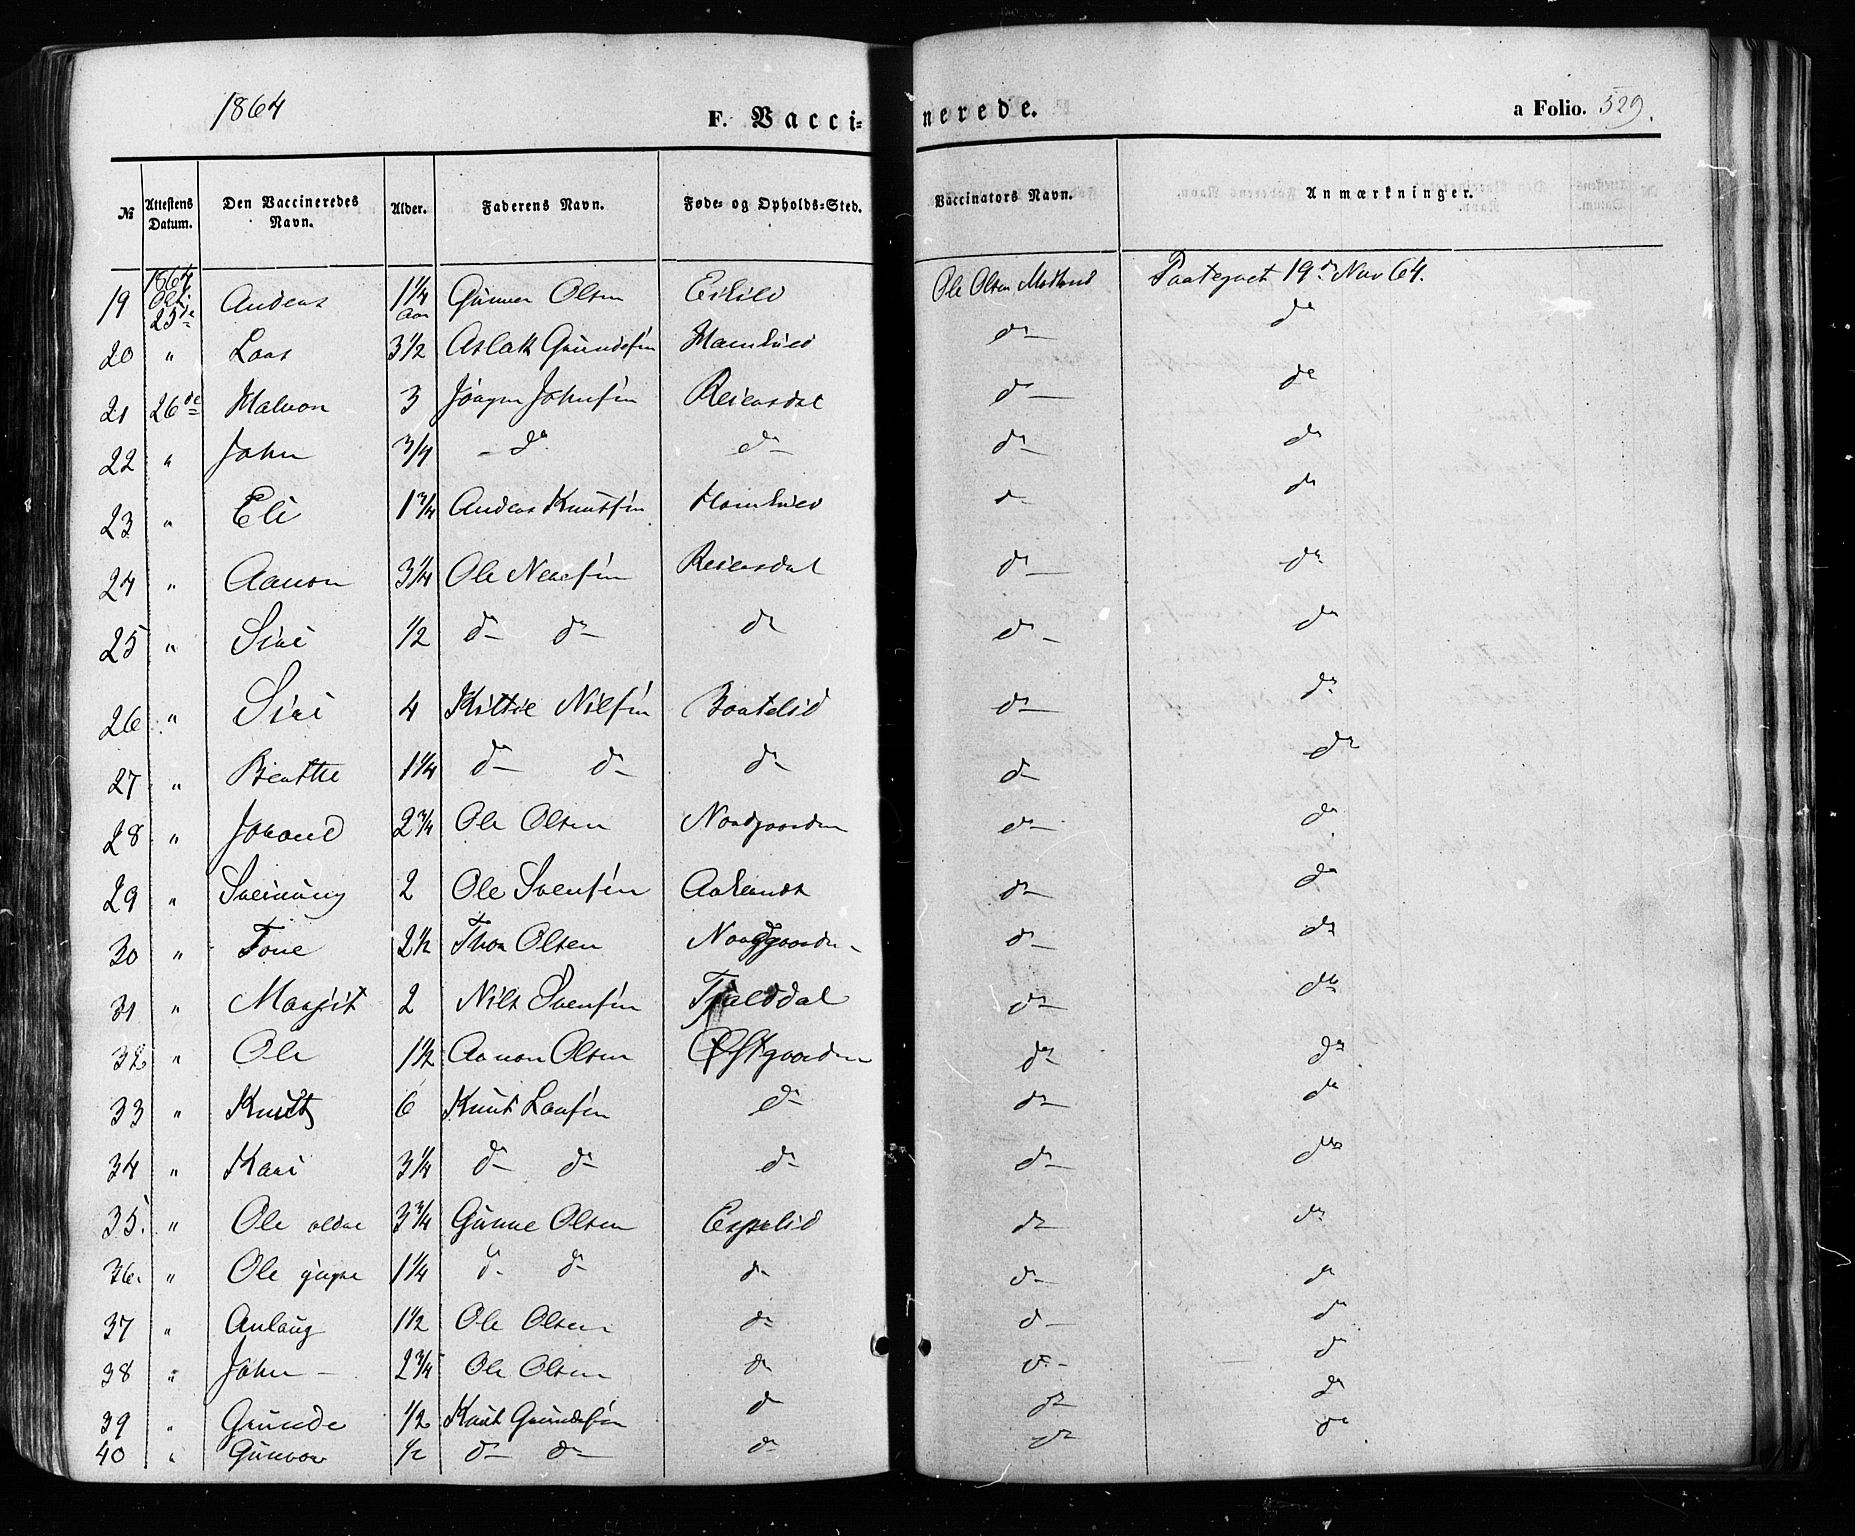 1864 F. Vacci- nerede. a Folio. 529.
№ Attestens Datum. Den Vaccineredes Navn. Alder. Faderens Navn. Føde- og Opholds-Sted. Vaccinators Navn. Anmærkninger.
19 1864 Okt: 25de Anders 1 1/4 Aar Gunner Olsen Ole Olsen Paategnet 19de Nov 64.
20 " Lars 3 1/2 Aslak Grundesen do do
21 26de Halvor 3 Jørgen Johnsen Reiersdal do do
22 " John 3/4 do do do do
23 " Eli 1 3/4 Anders Knutsen do do
24 " Aanon 3 1/4 Ole Reiersdal do do
25 " Siri 1/2 do do do do do
26 " Siri 4 Kittil Nilsen do do
27 " Berthe 1 1/4 do do do do do
28 " 2 3/4 Ole Olsen Nordgaarden do do
29 " Sveinung 2 Ole Svensen do do
30 " Tone 2 1/2 Thor Olsen Nordgaarden do do
31 " Margit 2 Nils Svensen Tjalddal do do
32 " Ole 1 1/2 Aanon Olsen Østgaarden do do
33 " Knut 6 Knut Larsen do do do
34 " Kari 3 1/4 do do do do do
35. " Ole eldre 3 3/4 Gunne Olsen Espelid do do
36. " Ole yngre 1 1/4 do do do do do
37 " Anlaug 1 1/2 Ole Olsen do do do
38 " John 2 3/4 Ole Olsen do do do
39 " Grunde 1/2 Knut Grundesen do do do
40 " Gunvor 1/2 do do do do do